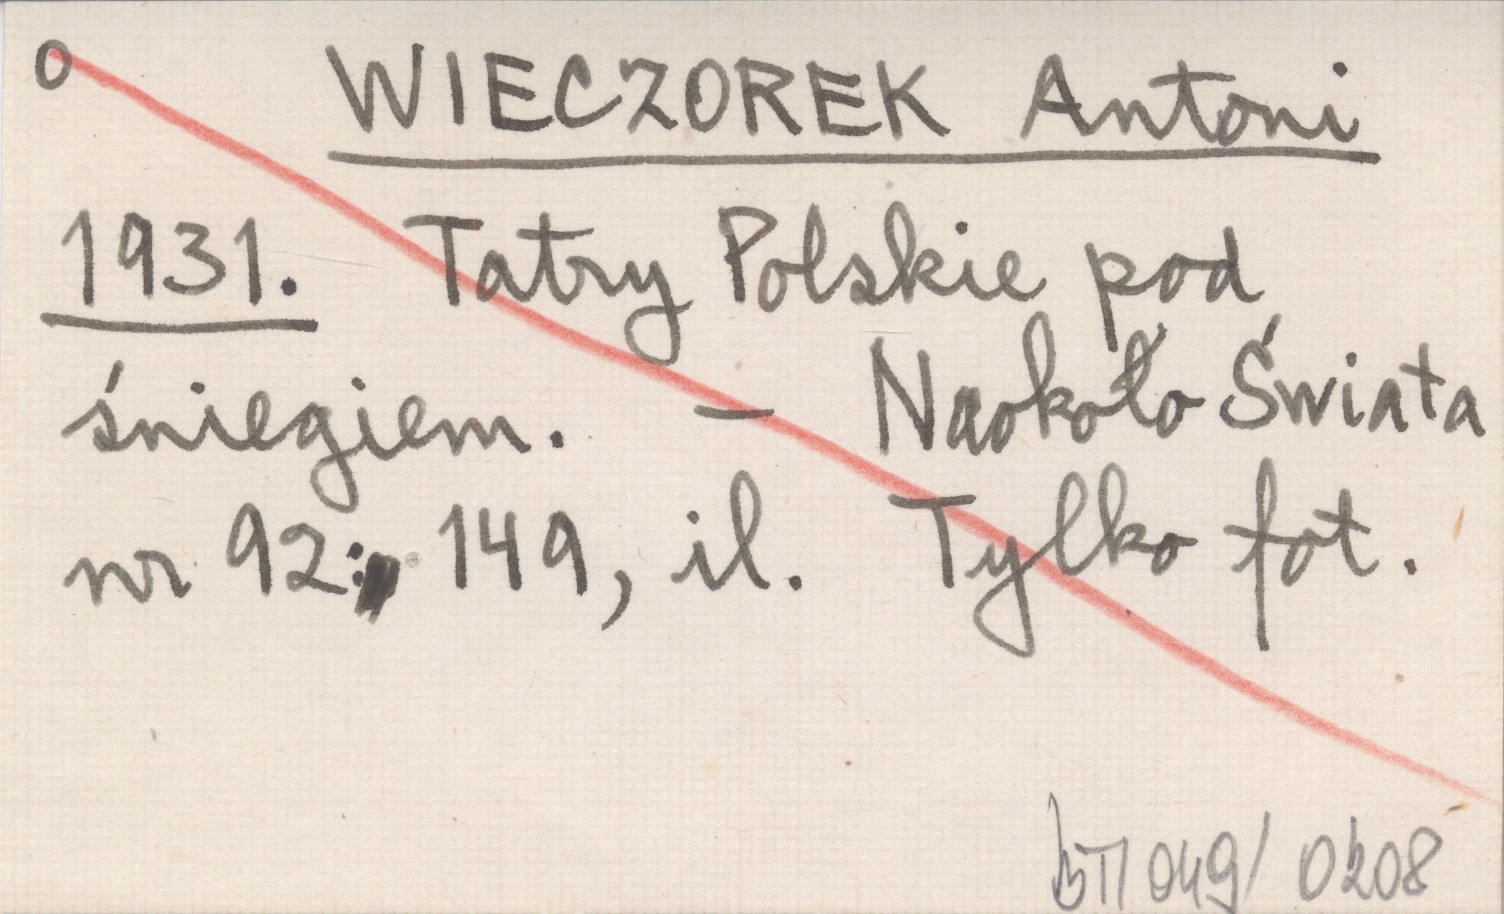 O WIECZOREK Antoni
1931. Tatry Polskie pod
śniegiem. — Naokoło Świata
nr 92: 149, il. Tylko fot.
049/ 0208